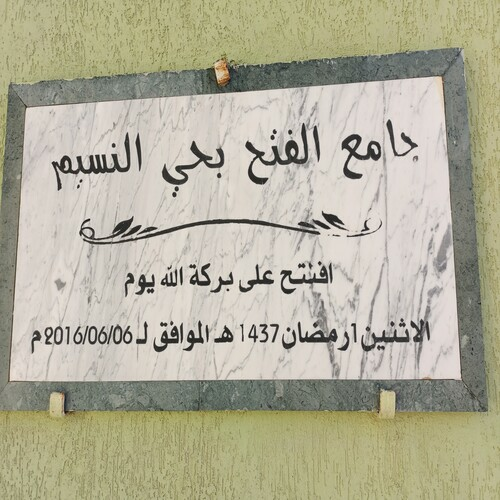 جامع الفتح بحي النسيم
افتتح على بركة الله يوم
الاثنين 1 رمضان 1437 هـ الموافق لـ 2016/06/06 م